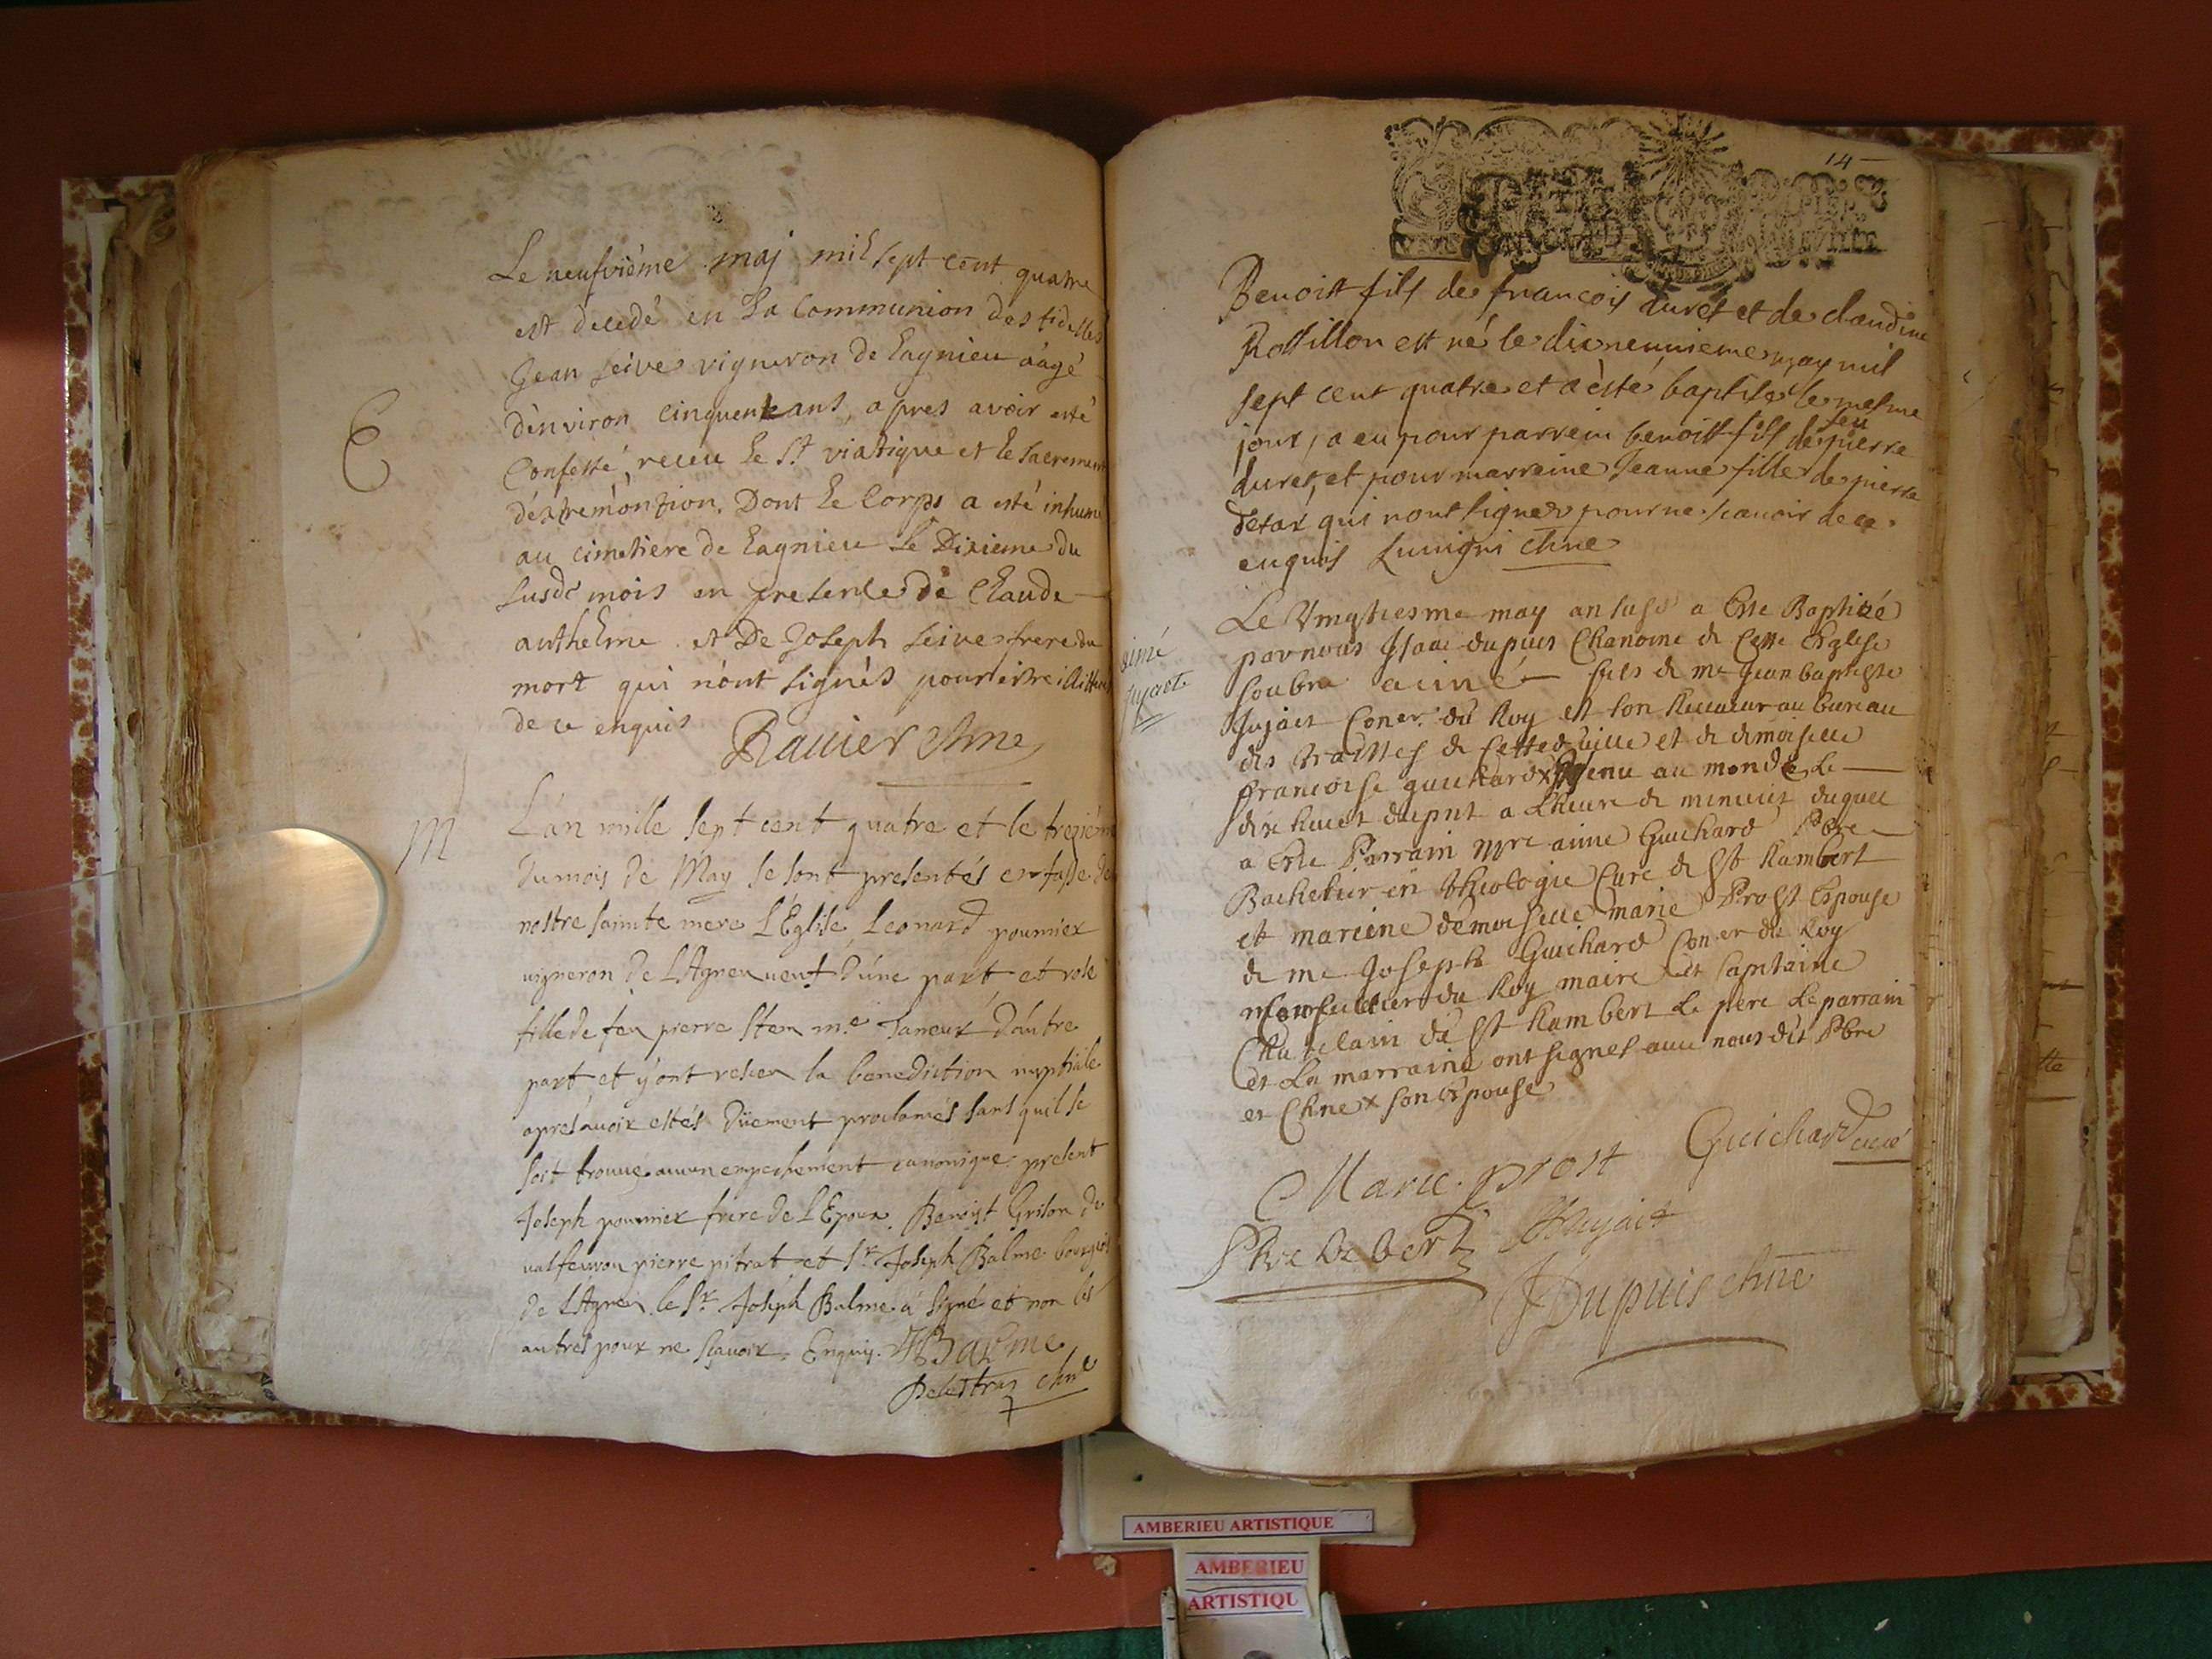 Le neufvième maj mil sept cent quatre
est decedé en La Communion des fidelles
Jean seive vigneron de Lagnieu aagé
d'environ cinquente ans, apres avoir esté
Confessé, receu Le St viatique et le sacrement
d'éxtremónction. Dont Le Corps a esté inhumé
au cimetiere de Lagnieu Le Dixieme du
susdt mois en presence de Claude
anthelme et De Joseph seive frere du
mort qui n'ont signés pour estre illitterés
de ce enquis
Ravier chne
E
M
L'an mille sept cent quatre et le treziéme
du mois de May se sont presentés en fasse de
nostre sainte mere L'Église, Leonard poumier
vigneron de LAgneu d'une part, et
fille de feu pierre D'autre
part et y ont receu la benediction nuptiale
apres avoir estés Düement proclamés sans quil se
soit trouvé aucun empechement canonique present
Joseph poumier frere de L'Epoux. Benoist Grilon de
pierre pitrat et Sr Joseph Balme bourgois
de LAgneu. le Sr Joseph Balme a signé et non les
autres pour ne sçavoir. Enquis. JBalme
chne
14
Benoist fils de françois duret et de claudine
Rossillon est né le dixneuvieme may mil
sept cent quatre et a èsté baptisé le mesme
jour, a eu pour parrein benoist fils de feu pierre
duret, et pour marreine Jeanne fille de pierre
qui n'ont signer pour ne scavoir de ce
enquis chne
aimé
Jujact
Le Vingtiesme may an susd a Este Baptizé
par nous Isaac dupuis Chanoine de Cette Esglise
soubre aimé fils de me Jean baptiste
Jujact Coner du Roy et son Receveur au bureau
des traittes de Cette ville et de dimoiselle
francoise guichard x venu au monde Le
dix huict dupnt a Lheure de minuict duquel
a Este Parrain Mre aimé Guichard Pbre
Bachelier en theologie Curé de St Rambert
et mareine demoiselle marie Prost Espouse
de me Joseph Guichard Coner du Roy
Conseillier du Roy maire et Capitaine
Chatelain de St Rambert Le pere Le parrain
et La marraine ont signes avec nous dit Pbre
et Chne x son Espouse
Marie prost Guichard curé
Jujact
J Dupuis chne
AMBERIEU ARTISTIQUE
AMBERIEU
ARTISTIQU